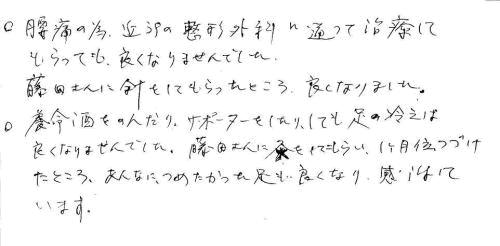 ○ 腰痛の為、近所の整形外科に通って治療して
もらっても、良くなりませんでした。
藤田さんに針をしてもらったところ、良くなりました。
○ 養命酒をのんだり、サポーターをしたり、しても足の冷えは
良くなりませんでした。藤田さんに灸をしてもらい、1ヶ月位つづけ
たところ、あんなに、つめたかった足も良くなり、感謝して
います。